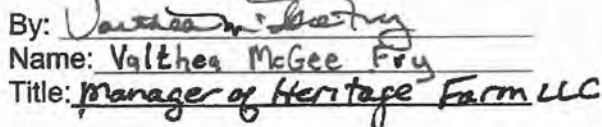 By: Valthea McGee Fry
Name: Valthea McGee Fry
Title: Manager of Heritage Farm LLC